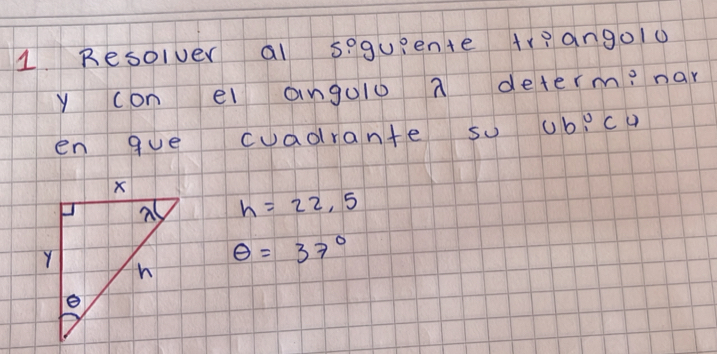 1. Resolver al siguiente triangolo
y con el angulo λ determinar
en que cuadrante su ubica
x
λ
h = 22,5
y
h
θ = 37°
θ